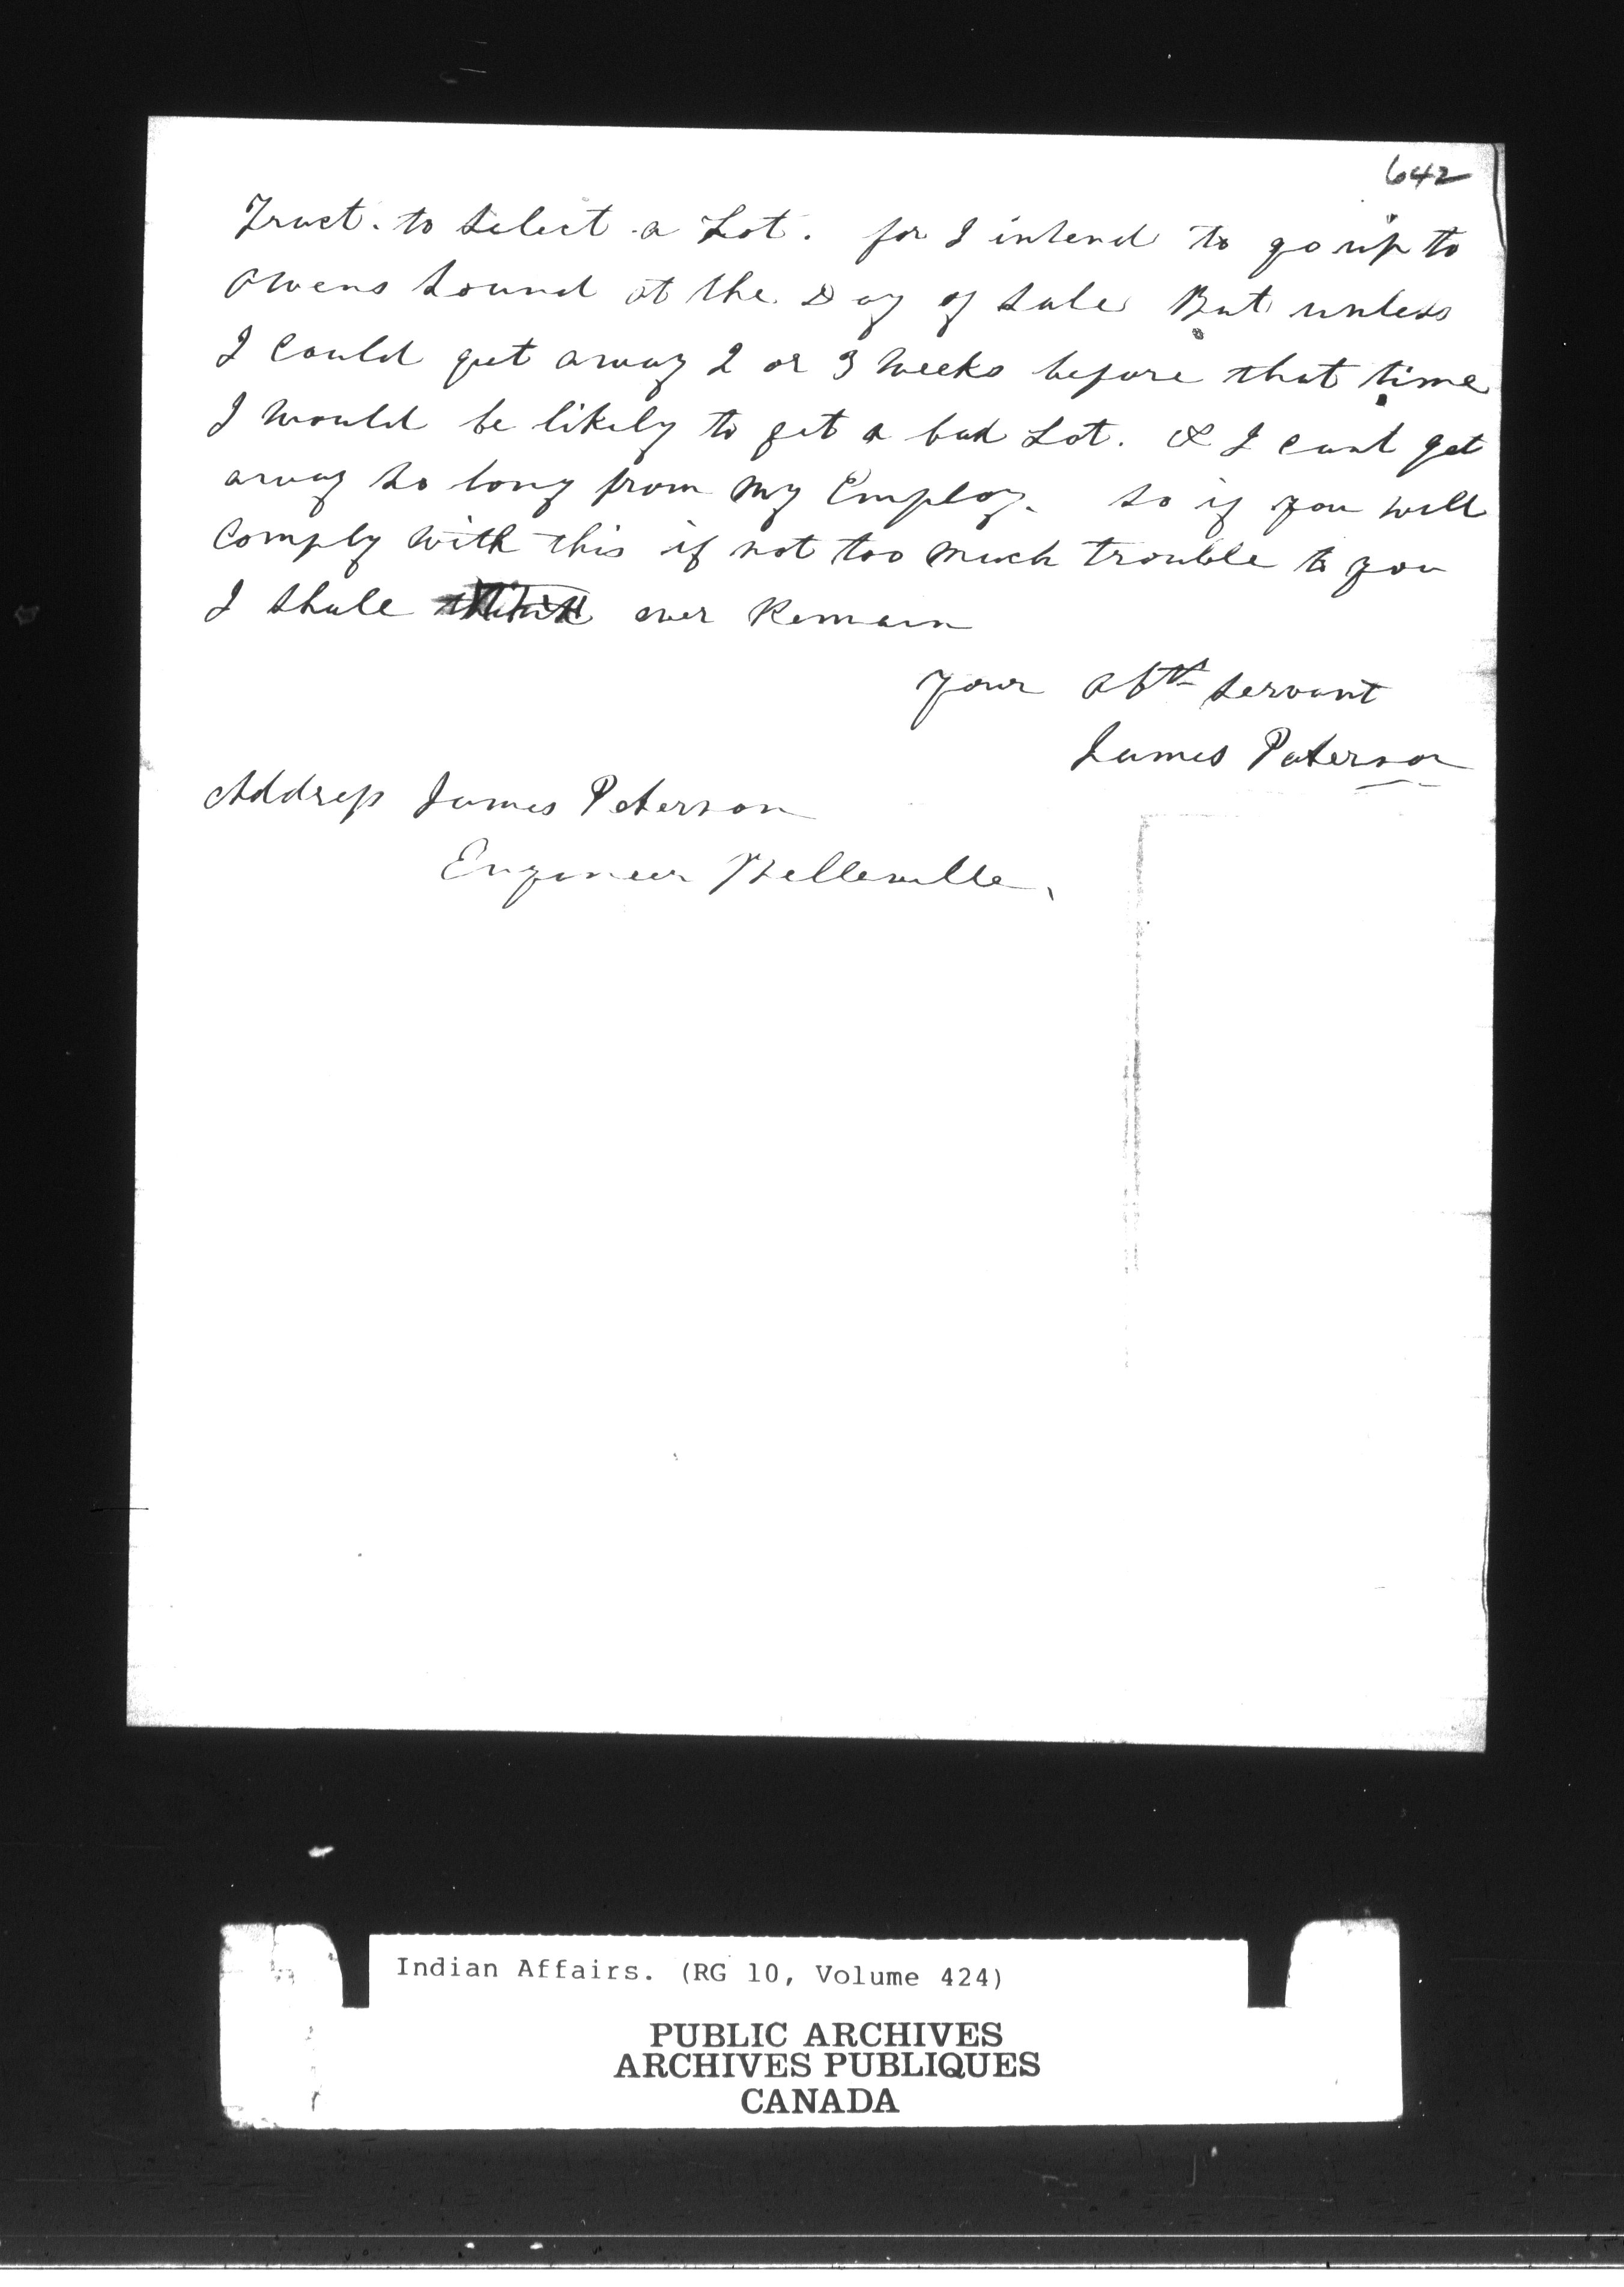 642
Tract. to Select a Lot. for I intend to go up to
Owens Sound at the Day of Sale But unless
I Could get away 2 or 3 Weeks before that time
I Would be likely to get a bad Lot. & I cant get
away so long from my Employ. So if you will
Comply with this if not too much trouble to you
I Shall ever Remain
Your Obt Servant
James Paterson
Address James Peterson
Engineer Belleville,
Indian Affairs. (RG 10, Volume 424)
PUBLIC ARCHIVES
ARCHIVES PUBLIQUES
CANADA